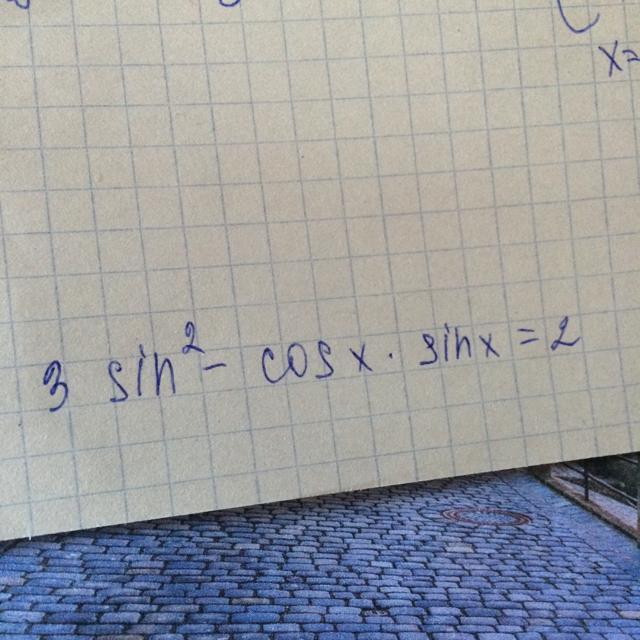 x=
3 sin² - cosx · sinx = 2